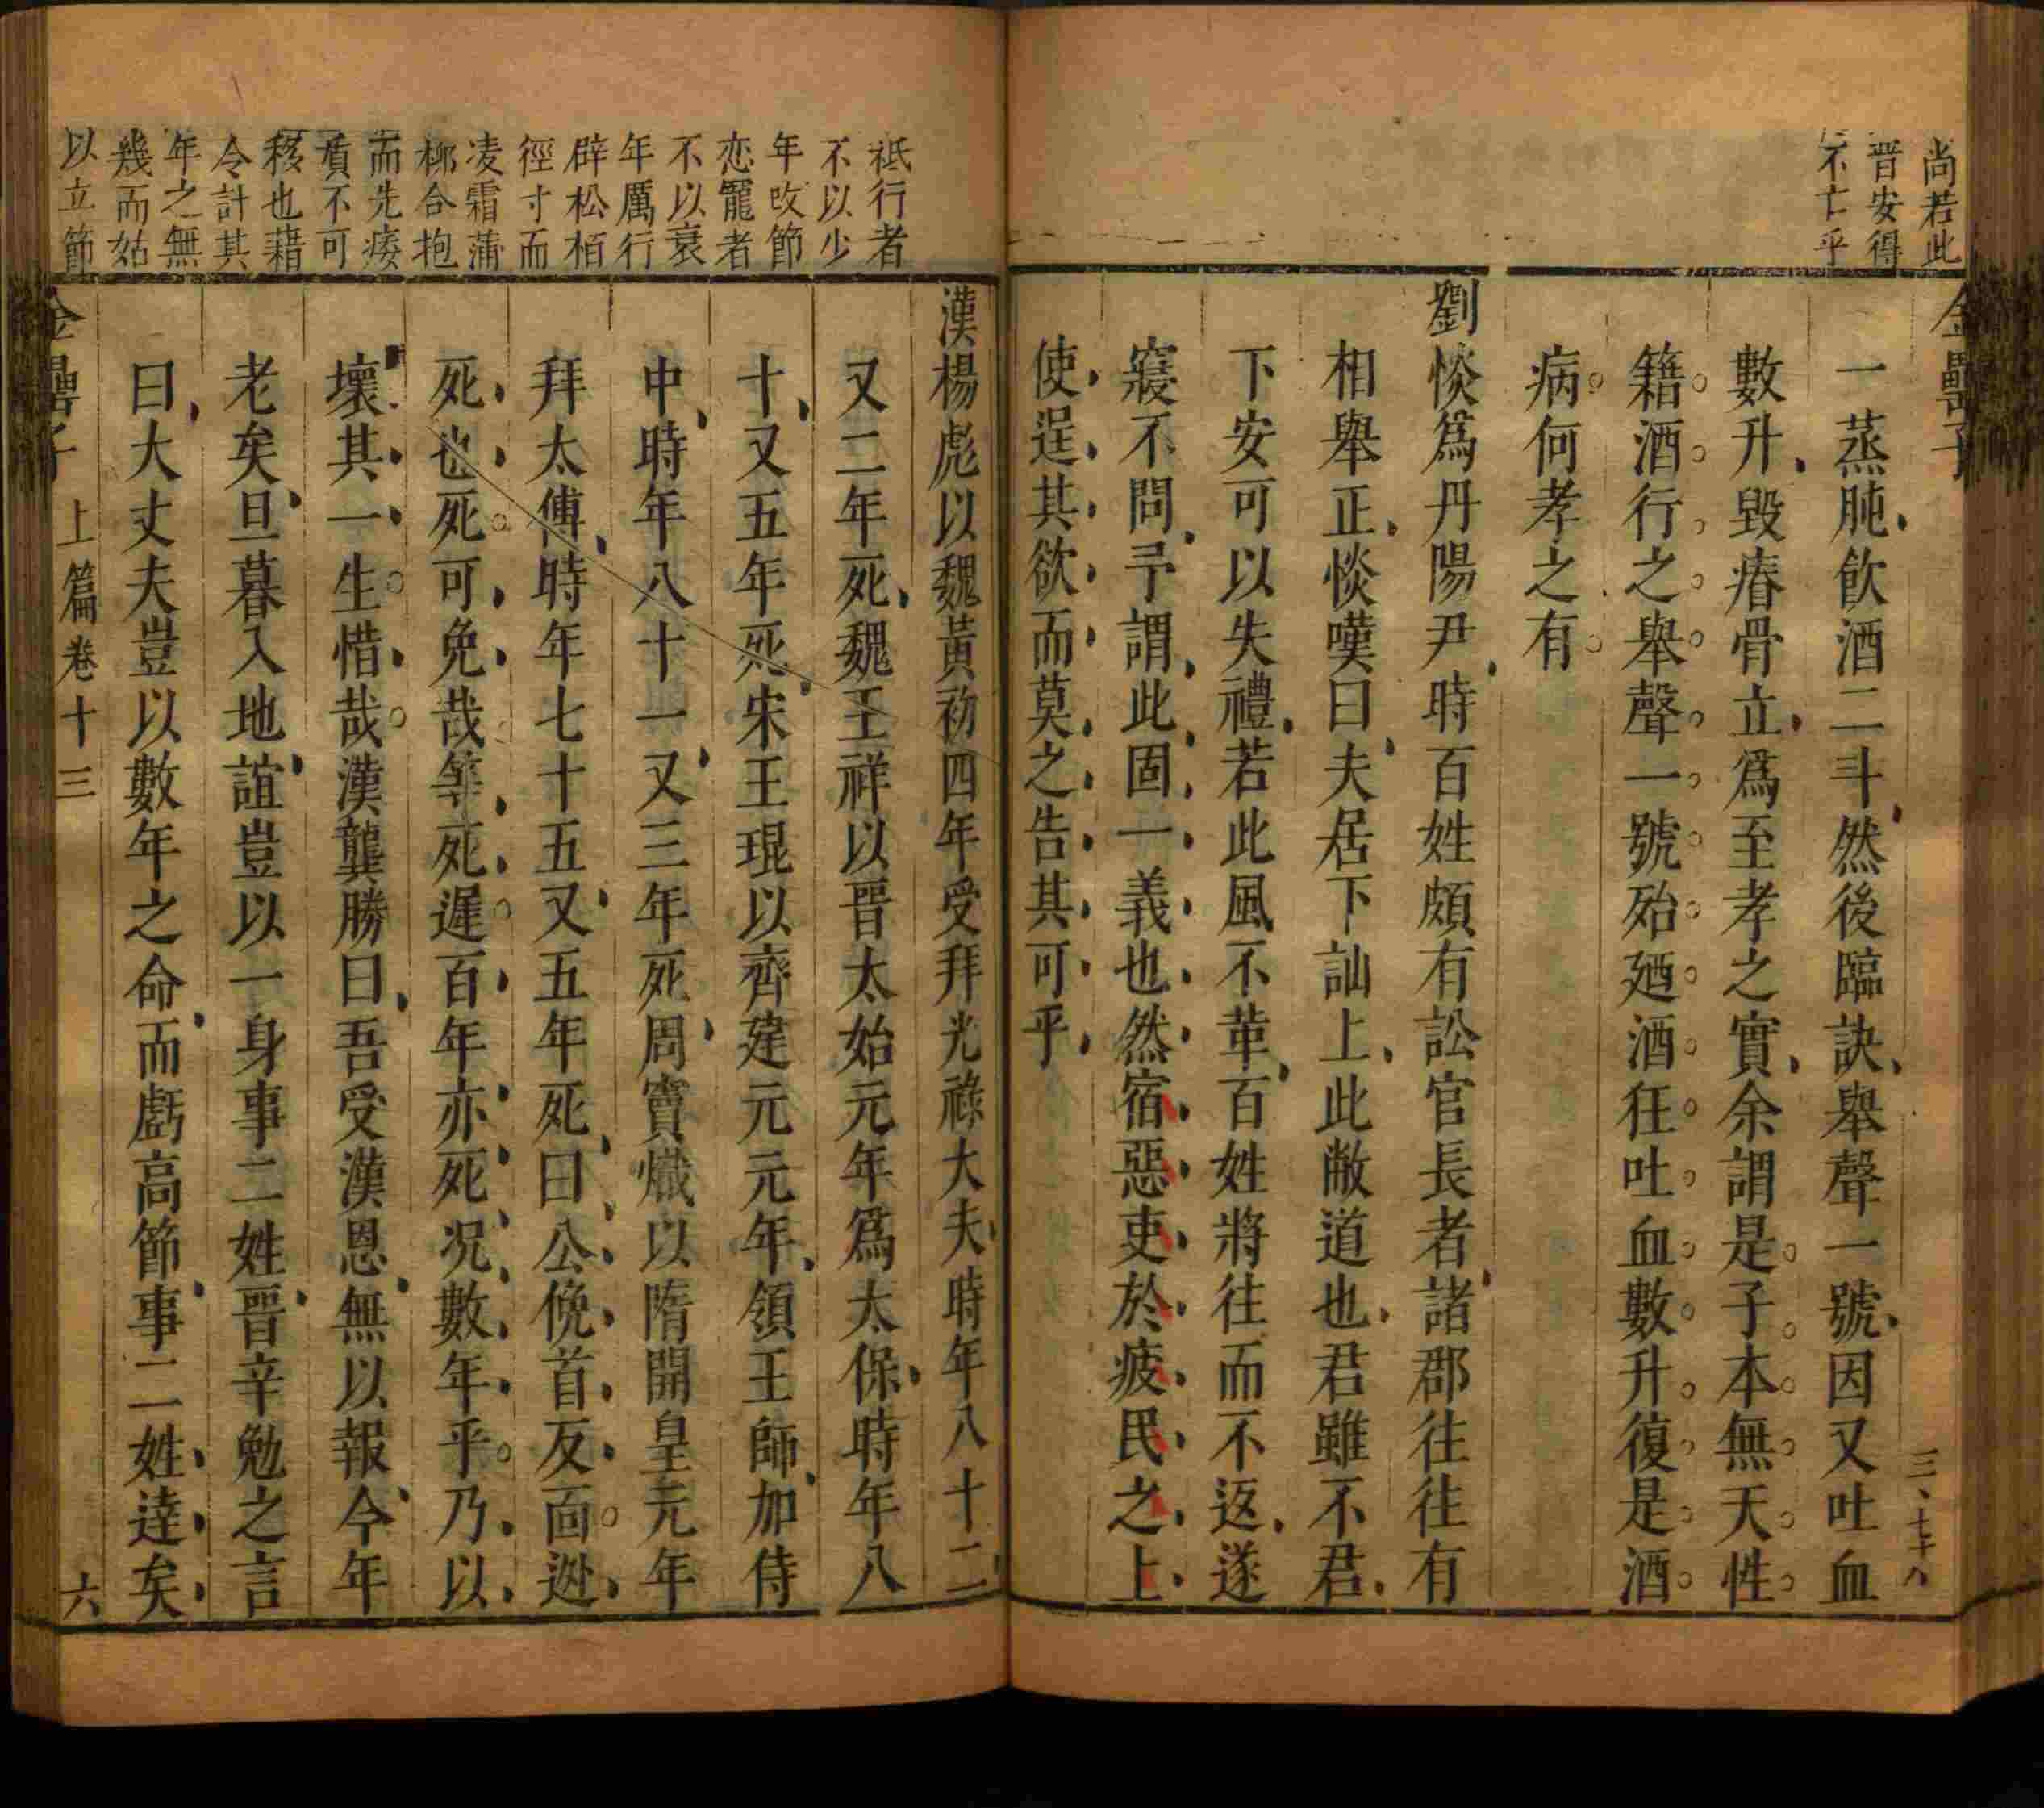 尚若此
晉安得
不亡乎
金罍子
三、七十八
一蒸肫飲酒二斗然後臨訣舉聲一號因又吐血
數升毀瘠骨立爲至孝之實余謂是子本無天性
籍酒行之舉聲一號殆廼酒狂吐血數升復是酒
病何孝之有
劉惔爲丹陽尹時百姓頗有訟官長者諸郡往往有
相舉正惔嘆曰夫居下訕上此敝道也君雖不君
下安可以失禮若此風不革百姓將往而不返遂
寢不問予謂此固一義也然宿惡吏於疲民之上
使逞其欲而莫之告其可乎
祗行者
不以少
年改節
恋寵者
不以衰
年厲行
辟松栢
徑寸而
凌霜蒲
柳合抱
而先痿
貭不可
移也藉
令計其
年之無
幾而姑
以立節
漢楊彪以魏黃初四年受拜光祿大夫時年八十二
又二年死魏王祥以晉太始元年爲太保時年八
十又五年死宋王琨以齊建元元年領王師加侍
中時年八十一又三年死周竇熾以隋開皇元年
拜太傅時年七十五又五年死曰公俛首反面逊
死也死可免哉等死遲百年亦死况數年乎乃以
壞其一生惜哉漢龔勝曰吾受漢恩無以報今年
老矣旦暮入地誼豈以一身事二姓晉辛勉之言
曰大丈夫豈以數年之命而虧高節事二姓逹矣
金罍子
上篇卷十三
六